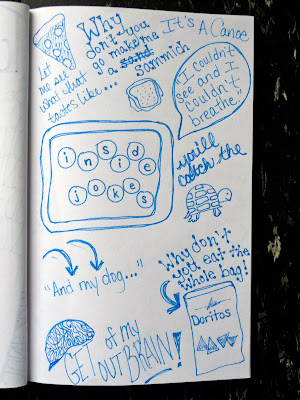 Let
me see
what that
tastes like...
Why
don't you
go make me
a sand
sammich
It's A Canoe
"I couldn't
see and I
couldn't
breathe."
inside
jokes
you'll
catch the
"And my dog..."
Why don't
you eat the
whole bag!
Doritos
of my
GET OUT BRAIN!